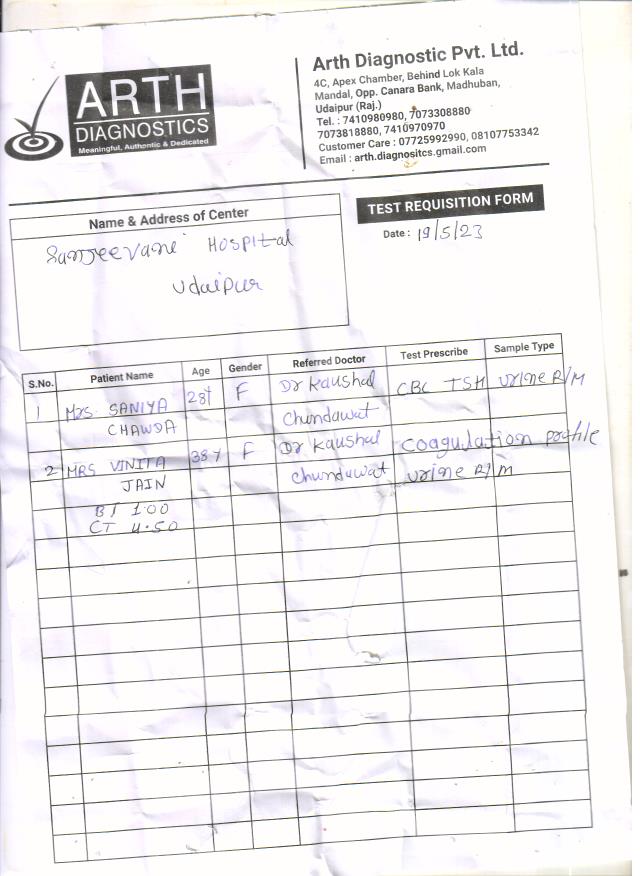 ARTH
DIAGNOSTICS
Meaningful, Authentic & Dedicated
Arth Diagnostic Pvt. Ltd.
4C, Apex Chamber, Behind Lok Kala
Mandal, Opp. Canara Bank, Madhuban,
Udaipur (Raj.)
Tel. : 7410980980, 7073308880
7073818880, 7410970970
Customer Care : 07725992990, 08107753342
Email : arth.diagnositcs.gmail.com
Name & Address of Center
Sanjeevani Hospital
Udaipur
TEST REQUISITION FORM
Date : 19/5/23
S.No. Patient Name Age Gender Referred Doctor Test Prescribe Sample Type
1 Mrs SANIYA 28Y F Dr Kaushal CBC TSH Urine R/M
CHAWDA Chundawat
2 MRS VINITA 38Y F Dr Kaushal Coagulation profile
JAIN Chundawat Urine R/M
BT 1.00
CT 4.50